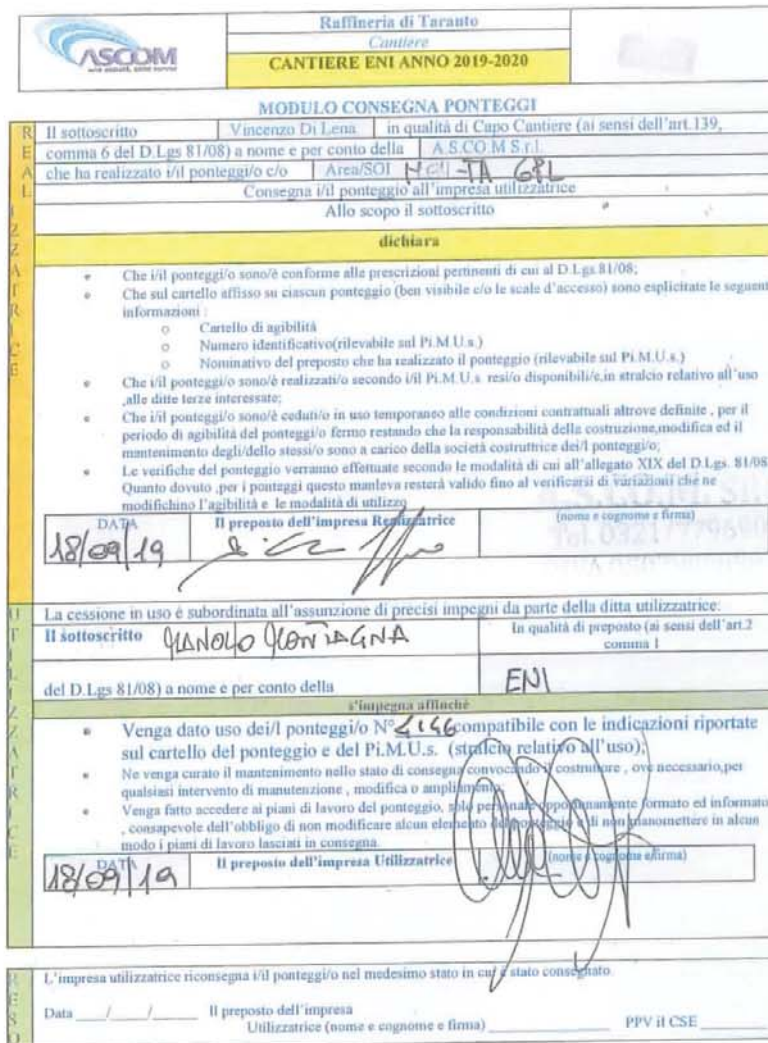 Raffineria di Taranto
Cantiere
CANTIERE ENI ANNO 2019-2020
ASCOM
MODULO CONSEGNA PONTEGGI
REALIZZATRICE
Il sottoscritto Vincenzo Di Lena in qualità di Capo Cantiere (ai sensi dell'art.139,
comma 6 del D.Lgs 81/08) a nome e per conto della A.S.CO.M S.r.l.
che ha realizzato i/il ponteggi/o c/o Area/SOI -TA GPL
Consegna i/il ponteggio all'impresa utilizzatrice
Allo scopo il sottoscritto
dichiara
Che i/il ponteggi/o sono/è conforme alle prescrizioni pertinenti di cui al D.Lgs.81/08;
Che sul cartello affisso su ciascun ponteggio (ben visibile c/o le scale d'accesso) sono esplicitate le seguenti
informazioni :
Cartello di agibilità
Numero identificativo(rilevabile sul Pi.M.U.s.)
Nominativo del preposto che ha realizzato il ponteggio (rilevabile sul Pi.M.U.s.)
Che i/il ponteggi/o sono/è realizzati/o secondo i/il Pi.M.U.s. resi/o disponibili/e,in stralcio relativo all'uso
,alle ditte terze interessate;
Che i/il ponteggi/o sono/è ceduti/o in uso temporaneo alle condizioni contrattuali altrove definite , per il
periodo di agibilità del ponteggi/o fermo restando che la responsabilità della costruzione,modifica ed il
mantenimento degli/dello stessi/o sono a carico della società costruttrice dei/l ponteggi/o;
Le verifiche del ponteggio verranno effettuate secondo le modalità di cui all'allegato XIX del D.Lgs. 81/08
Quanto dovuto ,per i ponteggi questo manleva resterà valido fino al verificarsi di variazioni che ne
modifichino l'agibilità e le modalità di utilizzo
DATA Il preposto dell'impresa Realizzatrice (nome e cognome e firma)
18/09/19
UTILIZZATRICE
La cessione in uso è subordinata all'assunzione di precisi impegni da parte della ditta utilizzatrice:
Il sottoscritto MANOLO MONTAGNA In qualità di preposto (ai sensi dell'art.2
comma 1
del D.Lgs 81/08) a nome e per conto della ENI
s'impegna affinché
Venga dato uso dei/l ponteggi/o N° compatibile con le indicazioni riportate
sul cartello del ponteggio e del Pi.M.U.s. (stralcio relativo all'uso);
Ne venga curato il mantenimento nello stato di consegna convocando il costruttore , ove necessario,per
qualsiasi intervento di manutenzione , modifica o ampliamento;
Venga fatto accedere ai piani di lavoro del ponteggio, solo personale opportunamente formato ed informato
, consapevole dell'obbligo di non modificare alcun elemento del ponteggio e di non manomettere in alcun
modo i piani di lavoro lasciati in consegna.
DATA Il preposto dell'impresa Utilizzatrice (nome e cognome e firma)
18/09/19
RESO
L'impresa utilizzatrice riconsegna i/il ponteggi/o nel medesimo stato in cui è stato consegnato.
Data ____/____/____ Il preposto dell'impresa
Utilizzatrice (nome e cognome e firma) ____________ PPV il CSE ________